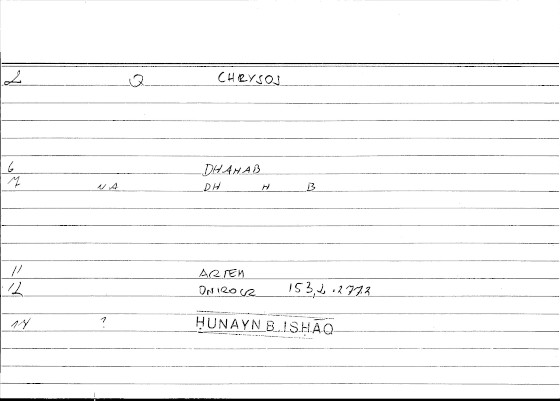 2 Q CHRYSOS
6 DHAHAB
7 NA DH H B
11 ARTEM
12 ONIROCR 153,2 .2772
14 ? ḤUNAYN B. ISḤĀQ